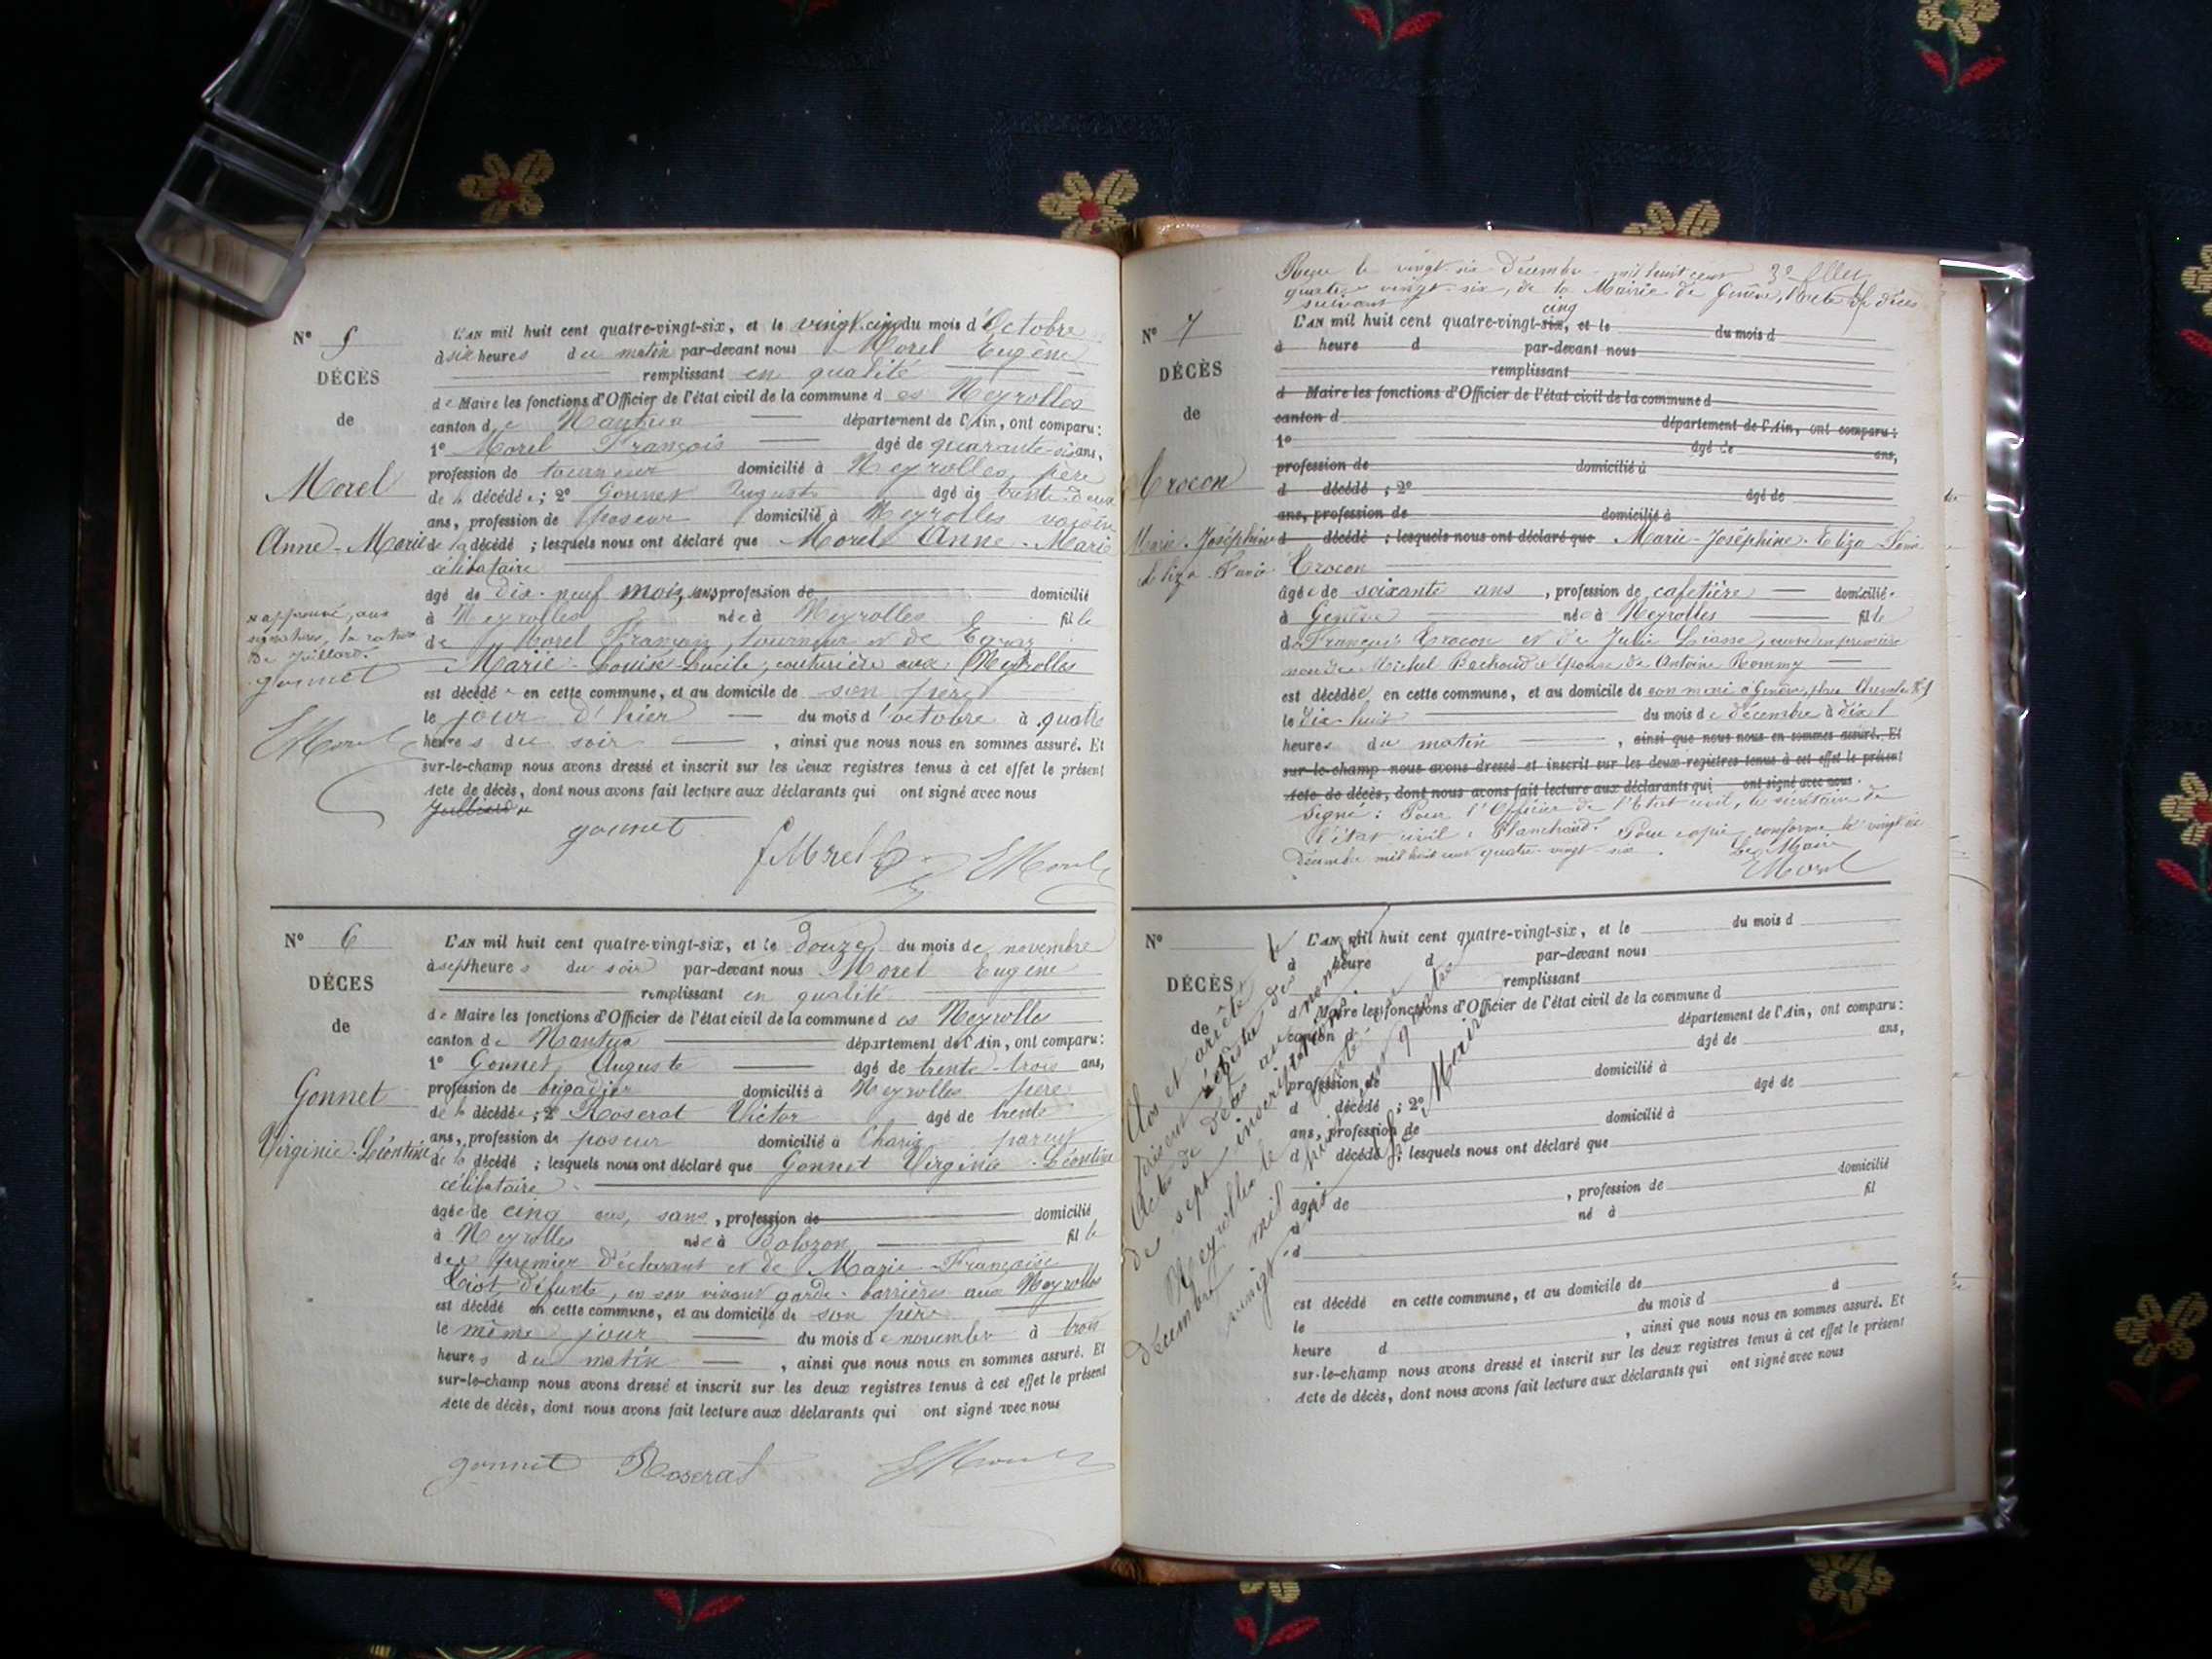 N° 5
DÉCÈS
de
Morel
Anne-Marie
L'AN mil huit cent quatre-vingt-six, et le vingt-cinq du mois d'Octobre
à six heures du matin par-devant nous Morel Eugène
remplissant en qualité
de Maire les fonctions d'Officier de l'état civil de la commune des Neyrolles
canton de Nantua département de l'Ain, ont comparu :
1° Morel François âgé de quarante-six ans,
profession de tourneur domicilié à Neyrolles, père
de la décédée ; 2° Gonnet Auguste âgé de trente-deux
ans, profession de poseur domicilié à Neyrolles voisin
de la décédé ; lesquels nous ont déclaré que Morel Anne-Marie
célibataire
âgé de dix-neuf mois, sans profession de domicilié
à Neyrolles née à Neyrolles fille
de Morel François, tourneur et de
Marie-Louise-Lucile, couturière aux Neyrolles
est décédée en cette commune, et au domicile de son père
le jour d'hier du mois d'octobre à quatre
heures du soir, ainsi que nous nous en sommes assuré. Et
sur-le-champ nous avons dressé et inscrit sur les deux registres tenus à cet effet le présent
Acte de décès, dont nous avons fait lecture aux déclarants qui ont signé avec nous
Juilliard
gonnet
f Morel
E Morel
approuvé, aux
signatures, la rature
de Juillard.
gonnet
E Morel
N° 6
DÉCES
de
Gonnet
Virginie-Léontine
L'AN mil huit cent quatre-vingt-six, et le douze du mois de novembre
à sept heures du soir par-devant nous Morel Eugène
remplissant en qualité
de Maire les fonctions d'Officier de l'état civil de la commune des Neyrolles
canton de Nantua département de l'Ain, ont comparu :
1° Gonnet Auguste âgé de trente-trois ans,
profession de brigadier domicilié à Neyrolles père
de la décédée ; 2° Roserat Victor âgé de trente
ans, profession de poseur domicilié à Charix parent
de la décédé ; lesquels nous ont déclaré que Gonnet Virginie-Léontine
célibataire
âgée de cinq ans, sans, profession de domicilié
à Neyrolles née à Bolozon fille
de premier déclarant et de Marie-Françoise
défunte, en son vivant garde-barrières aux Neyrolles
est décédé en cette commune, et au domicile de son père
le même jour du mois de novembre à trois
heures du matin, ainsi que nous nous en sommes assuré. Et
sur-le-champ nous avons dressé et inscrit sur les deux registres tenus à cet effet le présent
Acte de décès, dont nous avons fait lecture aux déclarants qui ont signé avec nous
gonnet Roserat E Morel
Reçu le vingt-six Décembre mil huit cent
quatre-vingt-six, de la Mairie de Genève, l'acte de décès
suivant
N° 7
DÉCÈS
de
Crocon
Marie-Joséphine
Eliza
cinq
L'AN mil huit cent quatre-vingt-six, et le du mois d
à heure d par-devant nous
remplissant
d Maire les fonctions d'Officier de l'état civil de la commune d
canton d département de l'Ain, ont comparu :
1° âgé de ans,
profession de domicilié à
d décédé ; 2° âgé de
ans, profession de domicilié à
d décédé ; lesquels nous ont déclaré que Marie-Joséphine-Eliza
Crocon
âgée de soixante ans, profession de cafetière domiciliée
à Genève née à Neyrolles fille
de François Crocon et de Julie
Michel Bachoud épouse de Antoine Rommy
est décédée en cette commune, et au domicile de son mari à Genève, place Chevelu
le dix-huit du mois de décembre à dix
heures du matin, ainsi que nous nous en sommes assuré. Et
sur-le-champ nous avons dressé et inscrit sur les deux registres tenus à cet effet le présent
Acte de décès, dont nous avons fait lecture aux déclarants qui ont signé avec nous.
Signé : Pour l'Officier de l'Etat civil, le secrétaire de
l'état civil : Blanchard. Pour copie conforme le vingt-six
Décembre mil huit cent quatre-vingt-six. Le Maire
E Morel
N°
DÉCÈS
de
L'AN mil huit cent quatre-vingt-six, et le du mois d
à heure d par-devant nous
remplissant
d Maire les fonctions d'Officier de l'état civil de la commune d
canton d département de l'Ain, ont comparu :
âgé de ans,
profession de domicilié à
d décédé ; 2° âgé de
ans, profession de domicilié à
d décédé ; lesquels nous ont déclaré que
domicilié
âgé de, profession de
à né à fil
d
est décédé en cette commune, et au domicile de
le du mois d à
heure d, ainsi que nous nous en sommes assuré. Et
sur-le-champ nous avons dressé et inscrit sur les deux registres tenus à cet effet le présent
Acte de décès, dont nous avons fait lecture aux déclarants qui ont signé avec nous
Clos et arrêté le
présent registre des
Actes de Décès au nombre
de sept inscriptions.
Neyrolles le trente-un
décembre mil huit cent quatre
vingt six Le Maire